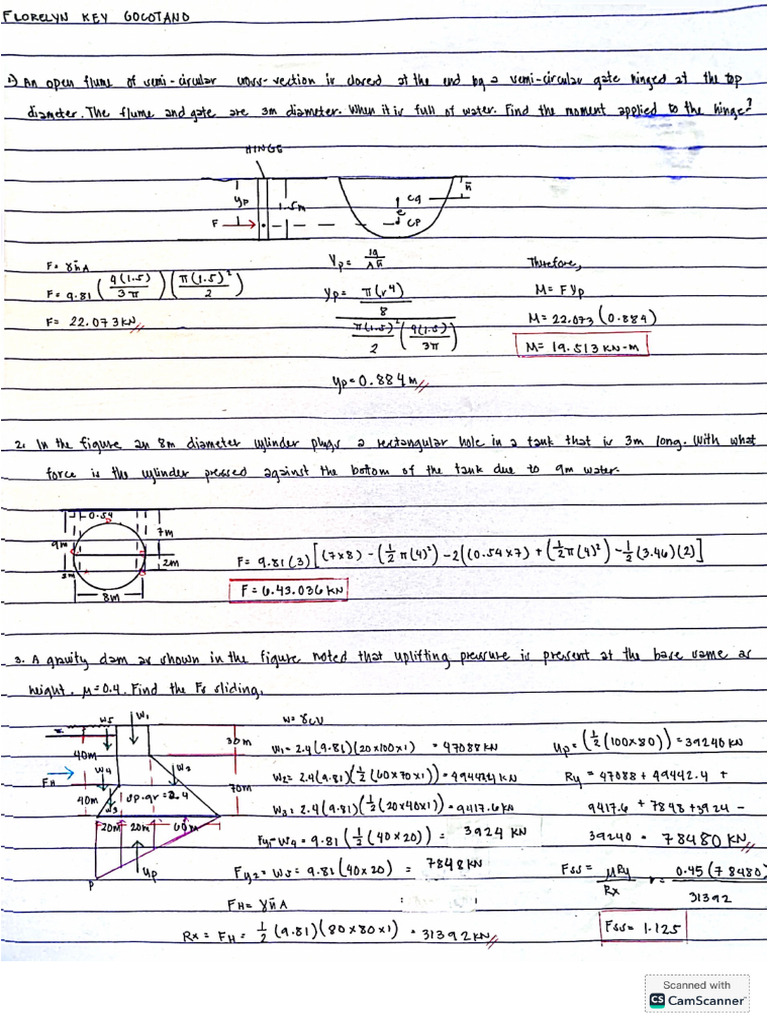 FLORELYN KEY GOCOTANO
1) An open flume of semi-circular cross-section is closed at the end by a semi-circular gate hinged at the top
diameter. The flume and gate are 3m diameter. When it is full of water. Find the moment applied to the hinge?
HINGE
yp
1.5m
F
h̄
cg
e
CP
F = γh̄A
F = 9.81 (4(1.5)/3π) (π(1.5)²/2)
F = 22.073 KN
Yp = Ig/Ah̄
yp = π(r⁴)/8 / π(1.5)²/2 (4(1.5)/3π)
yp = 0.884 m
Therefore,
M = F yp
M = 22.073 (0.884)
M = 19.513 KN-m
2. In the figure an 8m diameter cylinder plugs a rectangular hole in a tank that is 3m long. With what
force is the cylinder pressed against the bottom of the tank due to 9m water.
0.54
9m
7m
2m
8m
F = 9.81 (3) [(7x8) - (½ π(4)²) - 2((0.54x7) + (½π(4)²) - ½ (3.46)(2)]
F = 6.43.036 KN
3. A gravity dam as shown in the figure noted that uplifting pressure is present at the base same as
height. μ = 0.4. Find the Fs sliding.
W5
W1
40m
30m
W4
W2
FH
40m
W3
sp.gr = 2.4
70m
20m 20m 60m
P
Up
W = γcV
W1 = 2.4 (9.81)(20x100x1) = 47088 KN
W2 = 2.4(9.81)(½(60x70x1)) = 49442.4 KN
W3 = 2.4(9.81)(½(20x40x1)) = 9417.6 KN
Fy1 = W4 = 9.81 (½(40x20)) = 3924 KN
Fy2 = W5 = 9.81 (40x20) = 7848 KN
FH = γh̄A
Rx = FH = ½ (9.81)(80x80x1) = 31392 KN
Up = (½(100x80)) = 39240 KN
Ry = 47088 + 49442.4 +
9417.6 + 7848 + 3924 -
39240 = 78480 KN
Fss = μRy/Rx = 0.45 (78480)/31392
Fss = 1.125
Scanned with
CS CamScanner